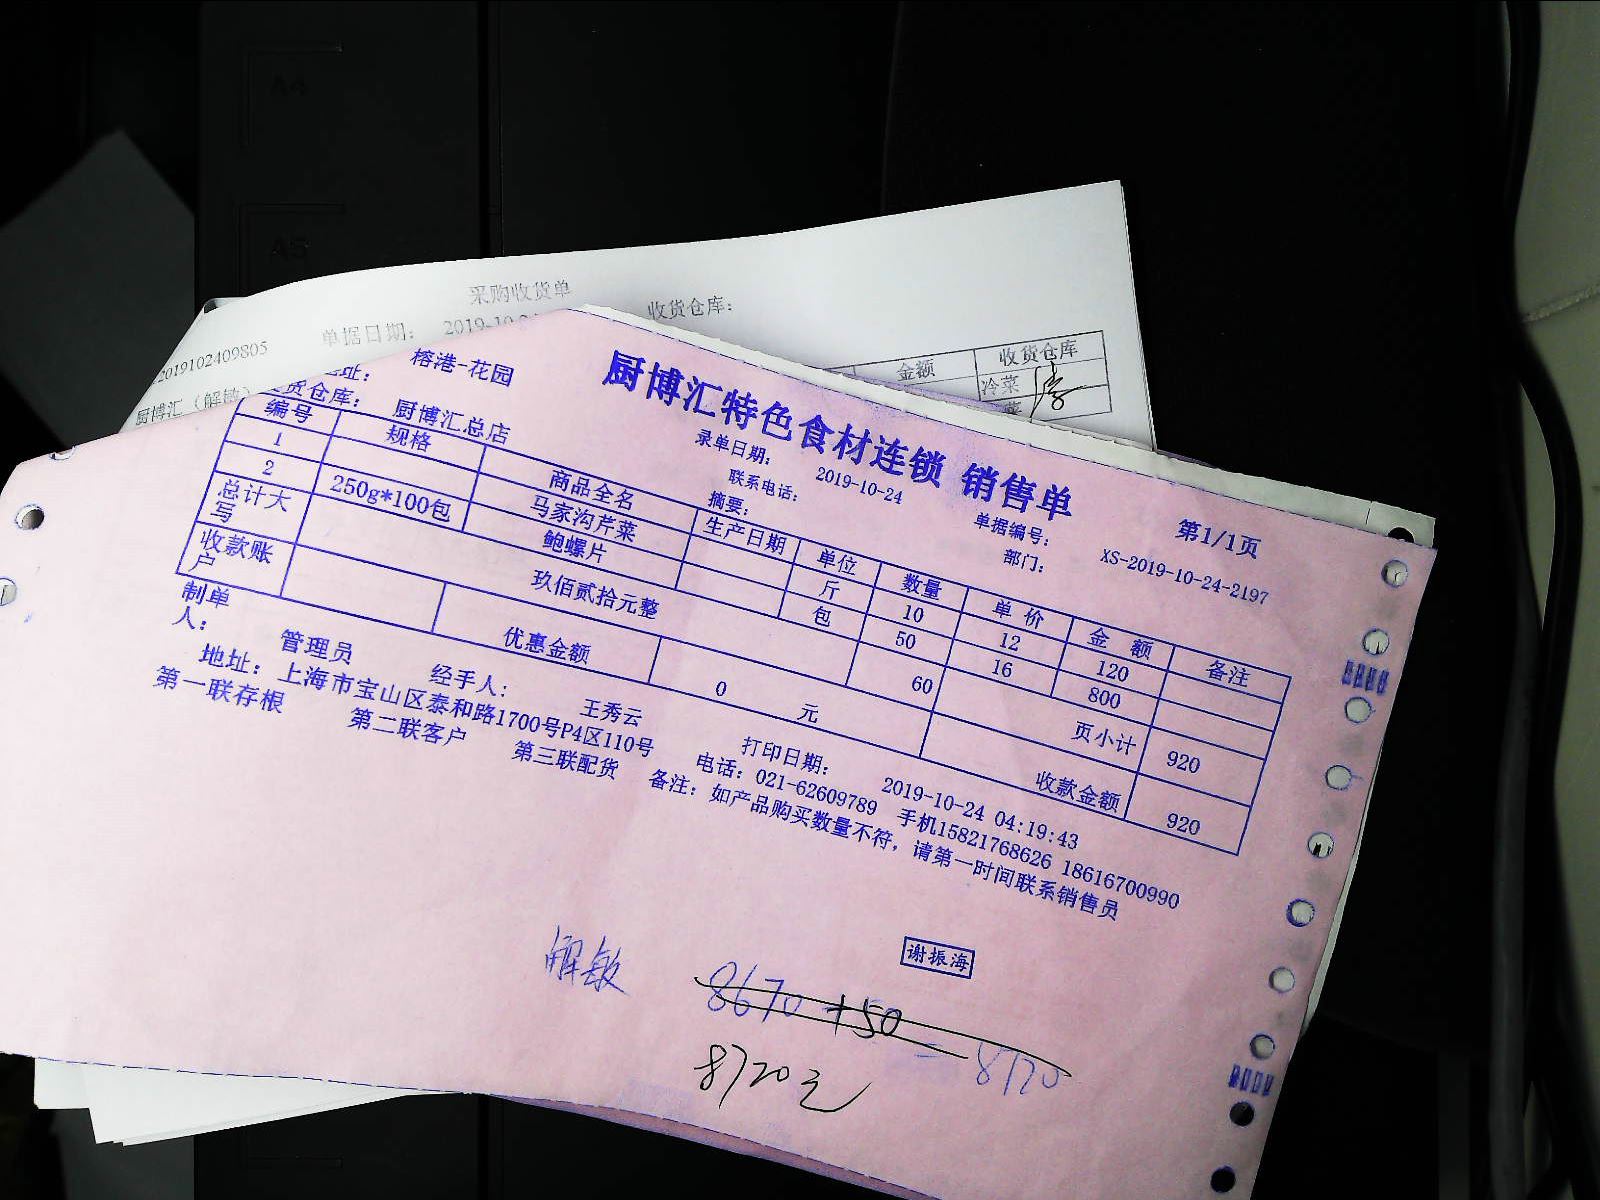 A4
A5
采购收货单
单据日期：
2019-10-24
收货仓库：
2019102409805
厨博汇（解敏）
金额
收货仓库
冷菜
厨博汇特色食材连锁 销售单
第1/1页
地址：
榕港-花园
录单日期：
2019-10-24
单据编号：
XS-2019-10-24-2197
发货仓库：
厨博汇总店
联系电话：
部门：
摘要：
编号 规格 商品全名 生产日期 单位 数量 单 价 金 额 备注
1 马家沟芹菜 斤 10 12 120
2 250g*100包 鲍螺片 包 50 16 800
总计大写 玖佰贰拾元整 60 页小计 920
收款账户 优惠金额 0 元 收款金额 920
制单人： 管理员 经手人： 王秀云 打印日期： 2019-10-24 04:19:43
地址：上海市宝山区泰和路1700号P4区110号 电话：021-62609789 手机15821768626 18616700990
第一联存根 第二联客户 第三联配货 备注：如产品购买数量不符，请第一时间联系销售员
谢振海
解敏
8670 +50 = 8720
8720元